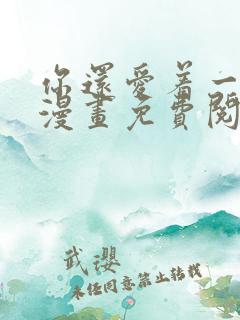 你還愛着一
漫畫免費閱
武瓔
未经同意禁止转载